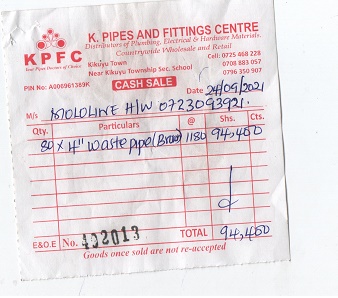 K. PIPES AND FITTINGS CENTRE
Distributors of Plumbing, Electrical & Hardware Materials.
Countrywide Wholesale and Retail
KPFC
Your Pipes Doctors of Choice
Kikuyu Town
Near Kikuyu Township Sec. School
Cell: 0725 468 228
0708 883 057
0796 350 907
PIN No: A006961389K
CASH SALE
Date 24/09/2021
M/s MOLOLINE H/W 0723093921.
Qty. Particulars @ Shs. Cts.
80 x 4" waste pipe (Brown) 1180 94,400
E&O.E No. 402013 TOTAL 94,400
Goods once sold are not re-accepted